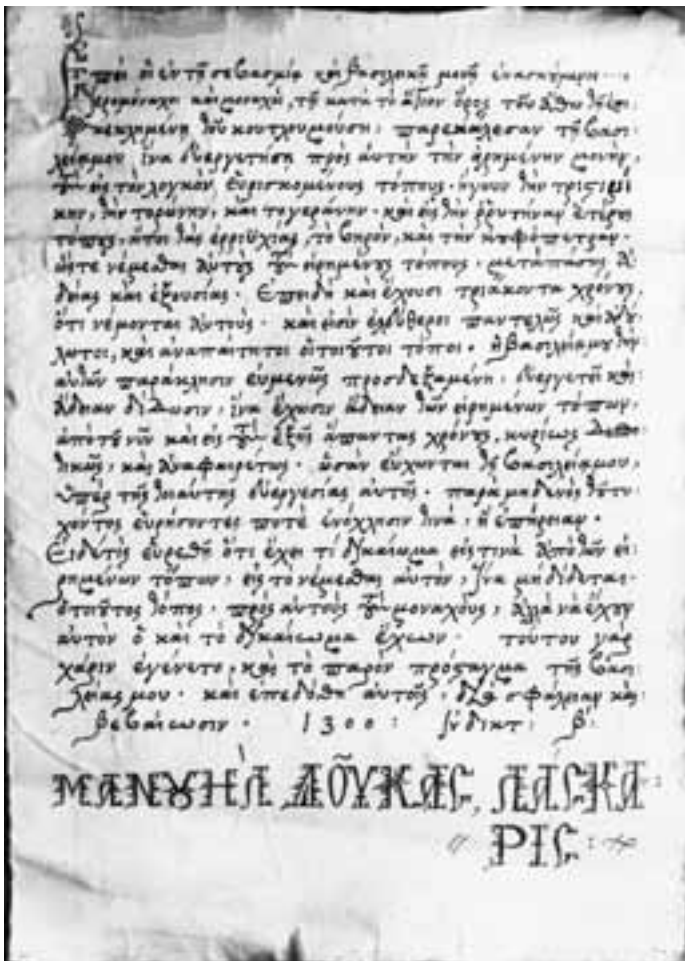 ποι οἱ ἐν τῇ σεβασμίᾳ καὶ βασιλικῇ μονῇ
ἱερομόναχοι καὶ μοναχοί, τῇ κατὰ τὸ ἅγιον ὄρος τοῦ Ἄθω
κεκλημένη τοῦ κουτλουμούση· παρεκάλεσαν τὴν βασι
λείαμου ἵνα εὐεργετήση πρὸς αὐτὴν τὴν εἰρημένην μονὴν,
εἰς τὸν λογκὸν εὑρισκομένους τόπους· ἤγουν τὴν
κην, τὴν τορώνην, καὶ το γεράνην· καὶ εἰς τὴν ἑτέρους
τόπους, ἤτοι τὰς , τὸ , καὶ τὴν
ὥστε νέμεσθαι αὐτοὺς τοὺς εἰρημένους τόπους· μετὰ πάσης ἀ
δείας καὶ ἐξουσίας· Ἐπειδὴ καὶ ἔχουσι τριάκοντα χρόνους
ὅτι νέμονται αὐτούς· καὶ εἰσὶν ἐλεύθεροι παντελῶς καὶ
λωτοι, καὶ ἀναπαίτητοι οἱ τοιοῦτοι τόποι· ἡ βασιλείαμου τὴν
αὐτῶν παράκλησιν εὐμενῶς προσδεξαμένη, εὐεργετεῖ καὶ
ἄδειαν δίδωσιν, ἵνα ἔχωσιν ἄδειαν τῶν εἰρημένων τόπων,
ἀπὸ τοῦ νῦν καὶ εἰς τοὺς ἑξῆς ἅπαντας χρόνους, κυρίως
τικῶς, καὶ ἀναφαιρέτως· ὡσὰν εὔχωνται τῆς βασιλείαμου,
ὑπὲρ τῆς τοιαύτης εὐεργεσίας αὐτῆς· παρὰ μηδενὸς τοῦ τυ
χόντος εὑρήσοντες ποτὲ ἐνόχλησιν τινὰ, ἢ ἐπήρειαν·
Εἰ δέ τις εὑρεθῆ ὅτι ἔχει τί δικαίωμα εἰς τινὰ ἀπὸ τῶν εἰ
ρημένων τόπων, εἰς το νέμεσθαι αὐτὸν, ἵνα μὴ δίδεται
ὁ τοιοῦτος τόπος, πρὸς αὐτοὺς τοὺς μοναχούς, ἀλλὰ νὰ ἔχη
αὐτὸν ὁ καὶ τὸ δικαίωμα ἔχων· τούτου γὰρ
χάριν ἐγένετο, καὶ τὸ παρὸν πρόσταγμα τῆς βασι
λείας μου· καὶ ἐπεδόθη αὐτοῖς, δι' ἀσφάλειαν καὶ
βεβαίωσιν· 1300: ἰνδικτ: β΄:
ΜΑΝΟΥΗΛ ΔΟΥΚΑΣ, ΛΑΣΚΑ
ΡΙΣ: